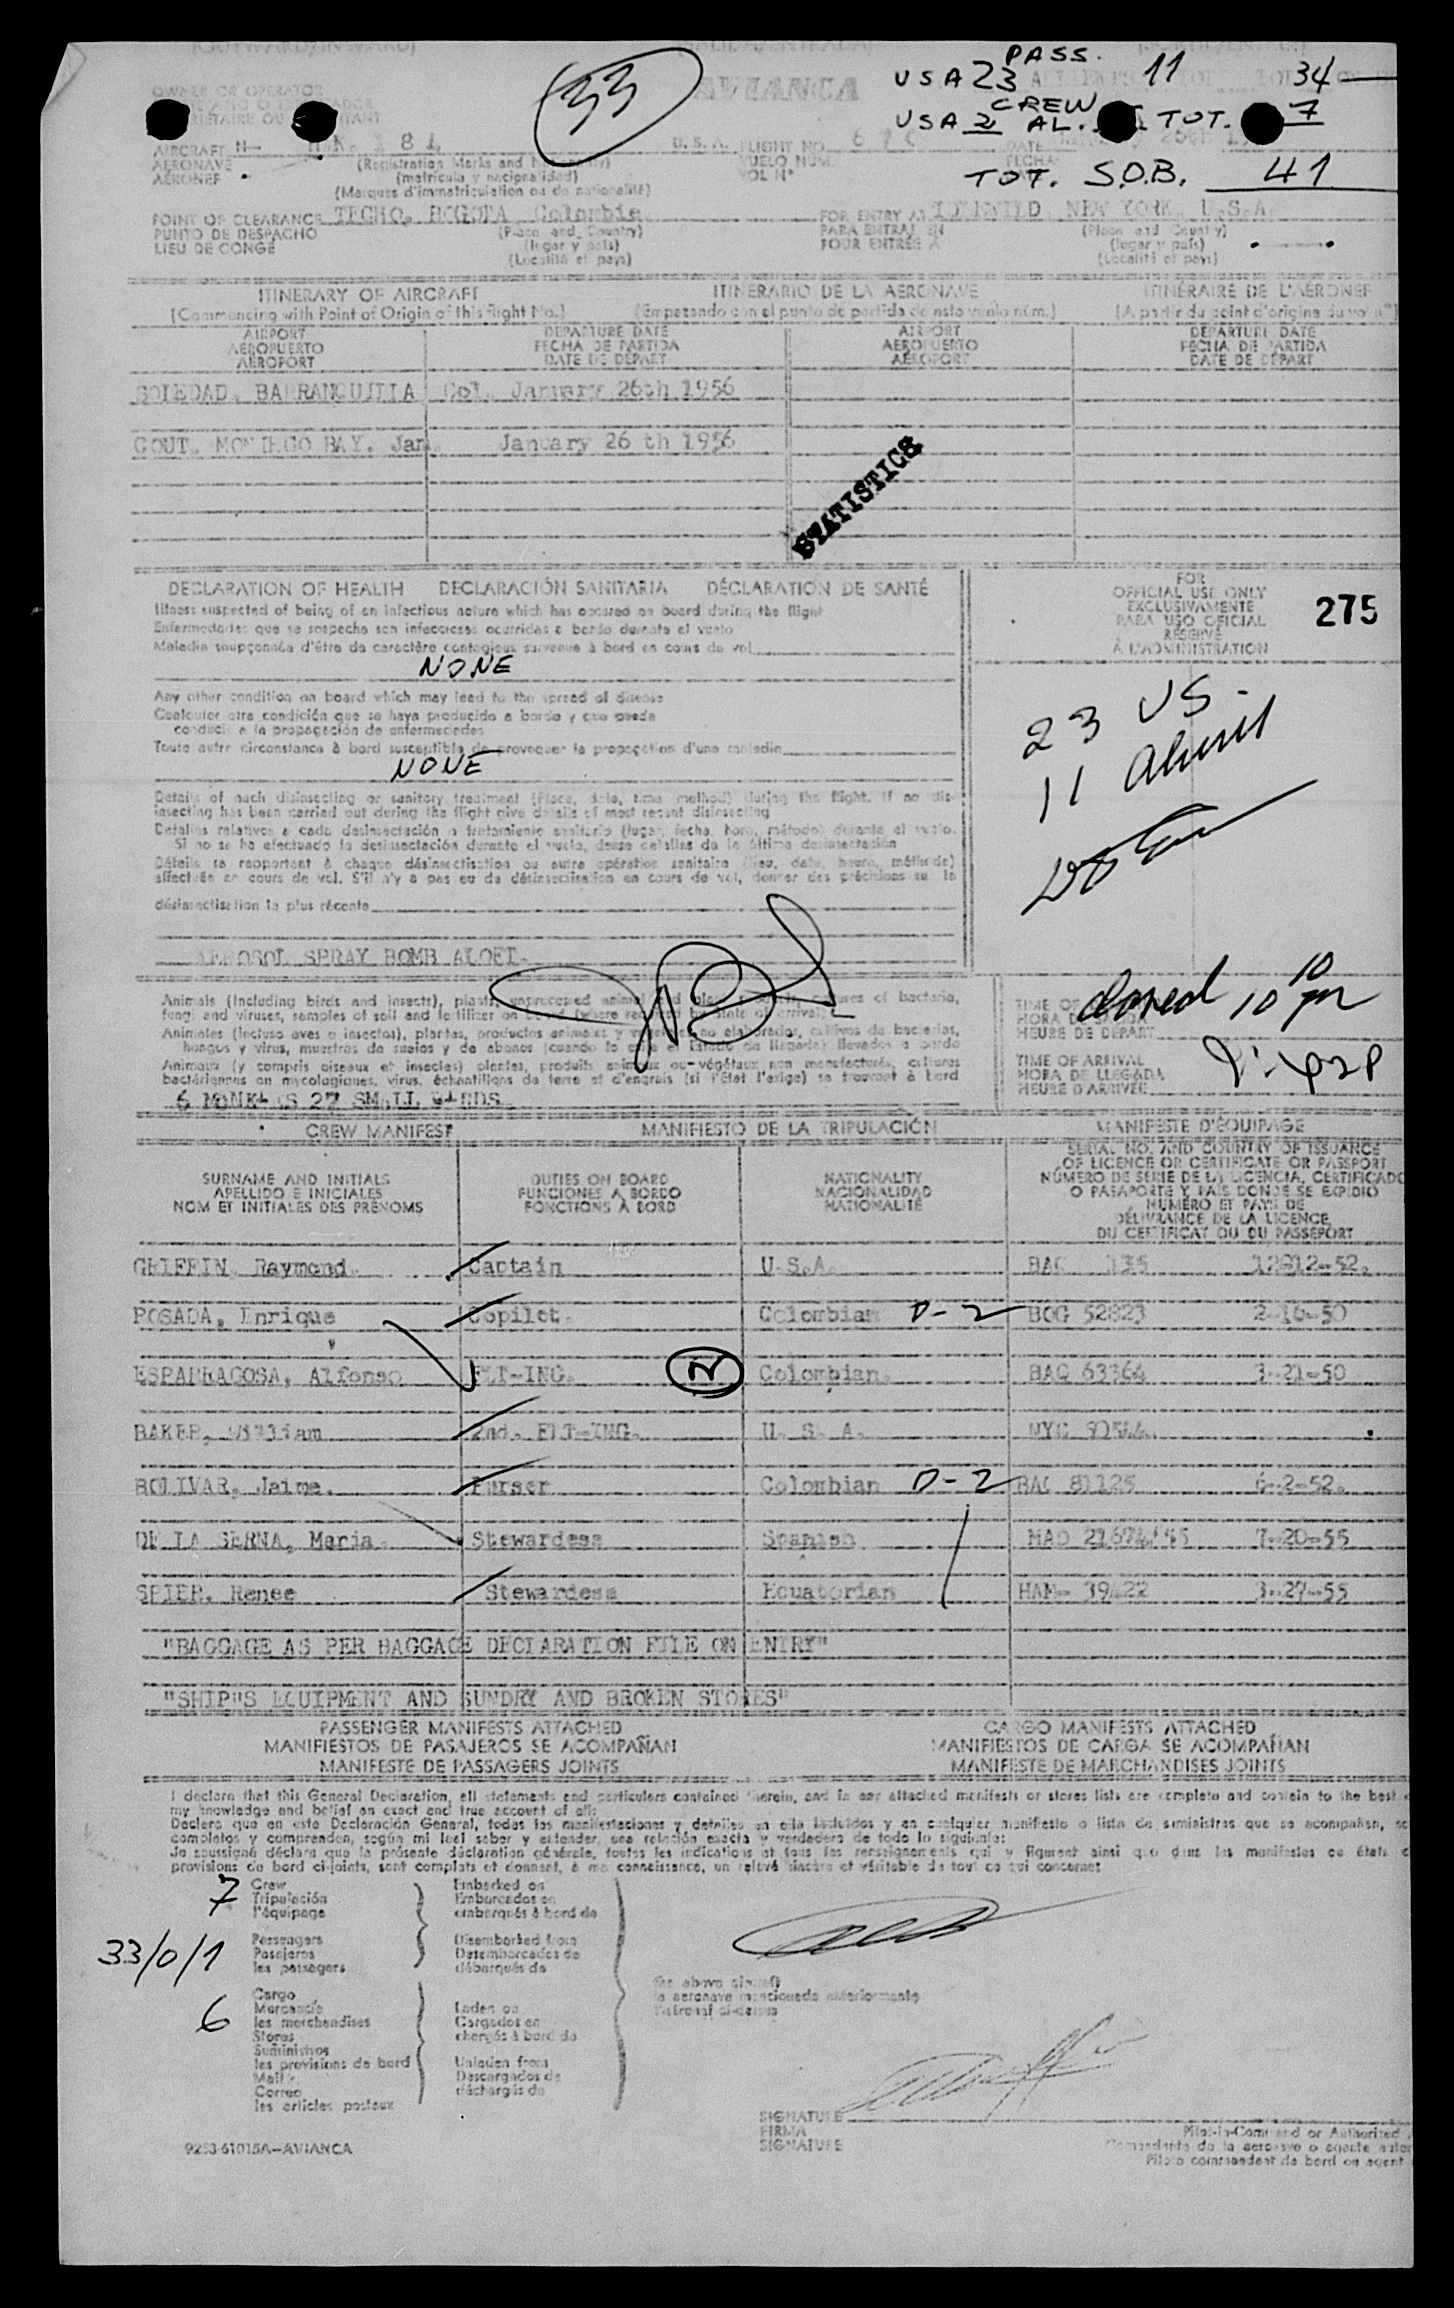 PASS.
USA 23 11 34
33
AVIANCA
OWNER OR OPERATOR
CREW
USA 2 AL. TOT. 7
AIRCRAFT
AERONAVE
AÉRONEF
(Registration Marks and
(matrícula y nacionalidad)
(Marques d'immatriculation ou de nationalité)
U.S.A. FLIGHT NO.
VUELO NÚM.
VOL Nº
DATE
FECHA
TOT. S.O.B. 41
POINT OF CLEARANCE TECHO, BOGOTA Colombia
PUNTO DE DESPACHO
LIEU DE CONGÉ
(Place and Country)
(lugar y país)
(Localité et pays)
FOR ENTRY AT IDLEWILD, NEW YORK, U.S.A.
PARA ENTRAR EN
POUR ENTRÉE À
(Place and Country)
(lugar y país)
(Localité et pays)
ITINERARY OF AIRCRAFT ITINERARIO DE LA AERONAVE ITINÉRAIRE DE L'AÉRONEF
(Commencing with Point of Origin of this flight No.) (Empezando con el punto de partida de este vuelo núm.) (A partir du point d'origine du vol nº)
AIRPORT DEPARTURE DATE AIRPORT DEPARTURE DATE
AEROPUERTO FECHA DE PARTIDA AEROPUERTO FECHA DE PARTIDA
AÉROPORT DATE DE DÉPART AÉROPORT DATE DE DÉPART
SOLEDAD, BARRANQUILLA Col. January 26th 1956
GOUT. MONTEGO BAY. Jam. January 26 th 1956
STATISTICS
DECLARATION OF HEALTH DECLARACIÓN SANITARIA DÉCLARATION DE SANTÉ
Illness suspected of being of an infectious nature which has occured on board during the flight
Enfermedades que se sospecha son infecciosas ocurridas a bordo durante el vuelo
Maladie soupçonnée d'être de caractère contagieux survenue à bord en cours de vol
NONE
FOR
OFFICIAL USE ONLY
EXCLUSIVAMENTE
PARA USO OFICIAL
RÉSERVÉ
À L'ADMINISTRATION
275
Any other condition on board which may lead to the spread of disease
Cualquier otra condición que se haya producido a bordo y que pueda
conducir a la propagación de enfermedades
Toute autre circonstance à bord susceptible de provoquer la propagation d'une maladie
NONE
23 US
11 Aliens
Details of each disinsecting or sanitary treatment (Place, date, time method) during the flight. If no dis-
insecting has been carried out during the flight give details of most recent disinsecting
Detalles relativos a cada desinsectación o tratamiento sanitario (lugar, fecha, hora, método) durante el vuelo.
Si no se ha efectuado la desinsectación durante el vuelo, dense detalles de la última desinsectación
Détails se rapportant à chaque désinsectisation ou autre opération sanitaire (lieu, date, heure, méthode)
effectuée en cours de vol. S'il n'y a pas eu de désinsectisation en cours de vol, donner des précisions sur la
désinsectisation la plus récente
AEROSOL SPRAY BOMB
Animals (Including birds and insects), plants, unprocessed animal and plant products, cultures of bacteria,
fungi and viruses, samples of soil and fertilizer on board (where required by State of arrival)
Animales (incluso aves o insectos), plantas, productos animales y vegetales no elaborados, cultivos de bacterias,
hongos y virus, muestras de suelos y de abonos (cuando lo exija el Estado de llegada) llevados a bordo
Animaux (y compris oiseaux et insectes) plantes, produits animaux ou végétaux non manufacturés, cultures
bactériennes ou mycologiques, virus, échantillons de terre et d'engrais (si l'État l'exige) se trouvant à bord
6 MONKEYS 27 SMALL BIRDS
HEURE DE DÉPART
TIME OF ARRIVAL
HORA DE LLEGADA
HEURE D'ARRIVÉE
CREW MANIFEST MANIFIESTO DE LA TRIPULACIÓN MANIFESTE D'ÉQUIPAGE
SURNAME AND INITIALS
APELLIDO E INICIALES
NOM ET INITIALES DES PRÉNOMS
DUTIES ON BOARD
FUNCIONES A BORDO
FONCTIONS À BORD
NATIONALITY
NACIONALIDAD
NATIONALITÉ
SERIAL NO. AND COUNTRY OF ISSUANCE
OF LICENCE OR CERTIFICATE OR PASSPORT
NÚMERO DE SERIE DE LA LICENCIA, CERTIFICADO
O PASAPORTE Y PAÍS DONDE SE EXPIDIÓ
NUMÉRO ET PAYS DE
DÉLIVRANCE DE LA LICENCE,
DU CERTIFICAT OU DU PASSEPORT
GRIFFIN, Raymond. Captain U.S.A. BAQ 135
POSADA, Enrique Copilot. Colombian D-2 BOG 52823 2-16-50
ESPARRAGOSA, Alfonso FLT-ING. 2 Colombian. BAQ 63364 3-21-50
BAKER, William 2nd. FLT-ING. U. S. A. NYC
BOLIVAR, Jaime. Purser Colombian D-2 BAQ 81125 6-2-52.
DE LA SERNA, Maria. Stewardess Spanish MAD 7-20-55
SPIER, Renee Stewardess Ecuatorian HAM- 39422 3-27-55
"BAGGAGE AS PER BAGGAGE DECLARATION FILE ON ENTRY"
"SHIP"S EQUIPMENT AND SUNDRY AND BROKEN STORES"
PASSENGER MANIFESTS ATTACHED CARGO MANIFESTS ATTACHED
MANIFIESTOS DE PASAJEROS SE ACOMPAÑAN MANIFIESTOS DE CARGA SE ACOMPAÑAN
MANIFESTE DE PASSAGERS JOINTS MANIFESTE DE MARCHANDISES JOINTS
I declare that this General Declaration, all statements and particulars contained therein, and in any attached manifests or stores lists are complete and contain to the best
my knowledge and belief an exact and true account of all:
Declaro que en esta Declaración General, todas las manifestaciones y detalles en ella incluidos y en cualquier manifiesto o lista de suministros que se acompañan,
completos y comprenden, según mi leal saber y entender, una relación exacta y verdadera de todo lo siguiente:
Je soussigné déclare que la présente déclaration générale, toutes les indications et tous les renseignements qui y figurent ainsi que dans les manifestes ou états
provisions de bord ci-joints, sont complets et donnent, à ma connaissance, un relevé sincère et véritable de tout ce qui concerne:
7 Crew
Tripulación
l'équipage
Embarked on
Embarcados en
embarqués à bord de
33/0/1 Passengers
Pasajeros
les passagers
Disembarked from
Desembarcados de
débarqués de
6 Cargo
Mercancía
les marchandises
Stores
Suministros
les provisions de bord
Mail
Correo
les articles postaux
Laden on
Cargados en
chargés à bord de
Unladen from
Descargados de
déchargés de
the above aircraft
la aeronave mencionada anteriormente
l'aéronef ci-dessus
SIGNATURE
FIRMA
SIGNATURE
Pilot-in-Command or Authorized
Comandante de la aeronave o agente
Pilote commandant de bord ou agent
9253-61015A—AVIANCA